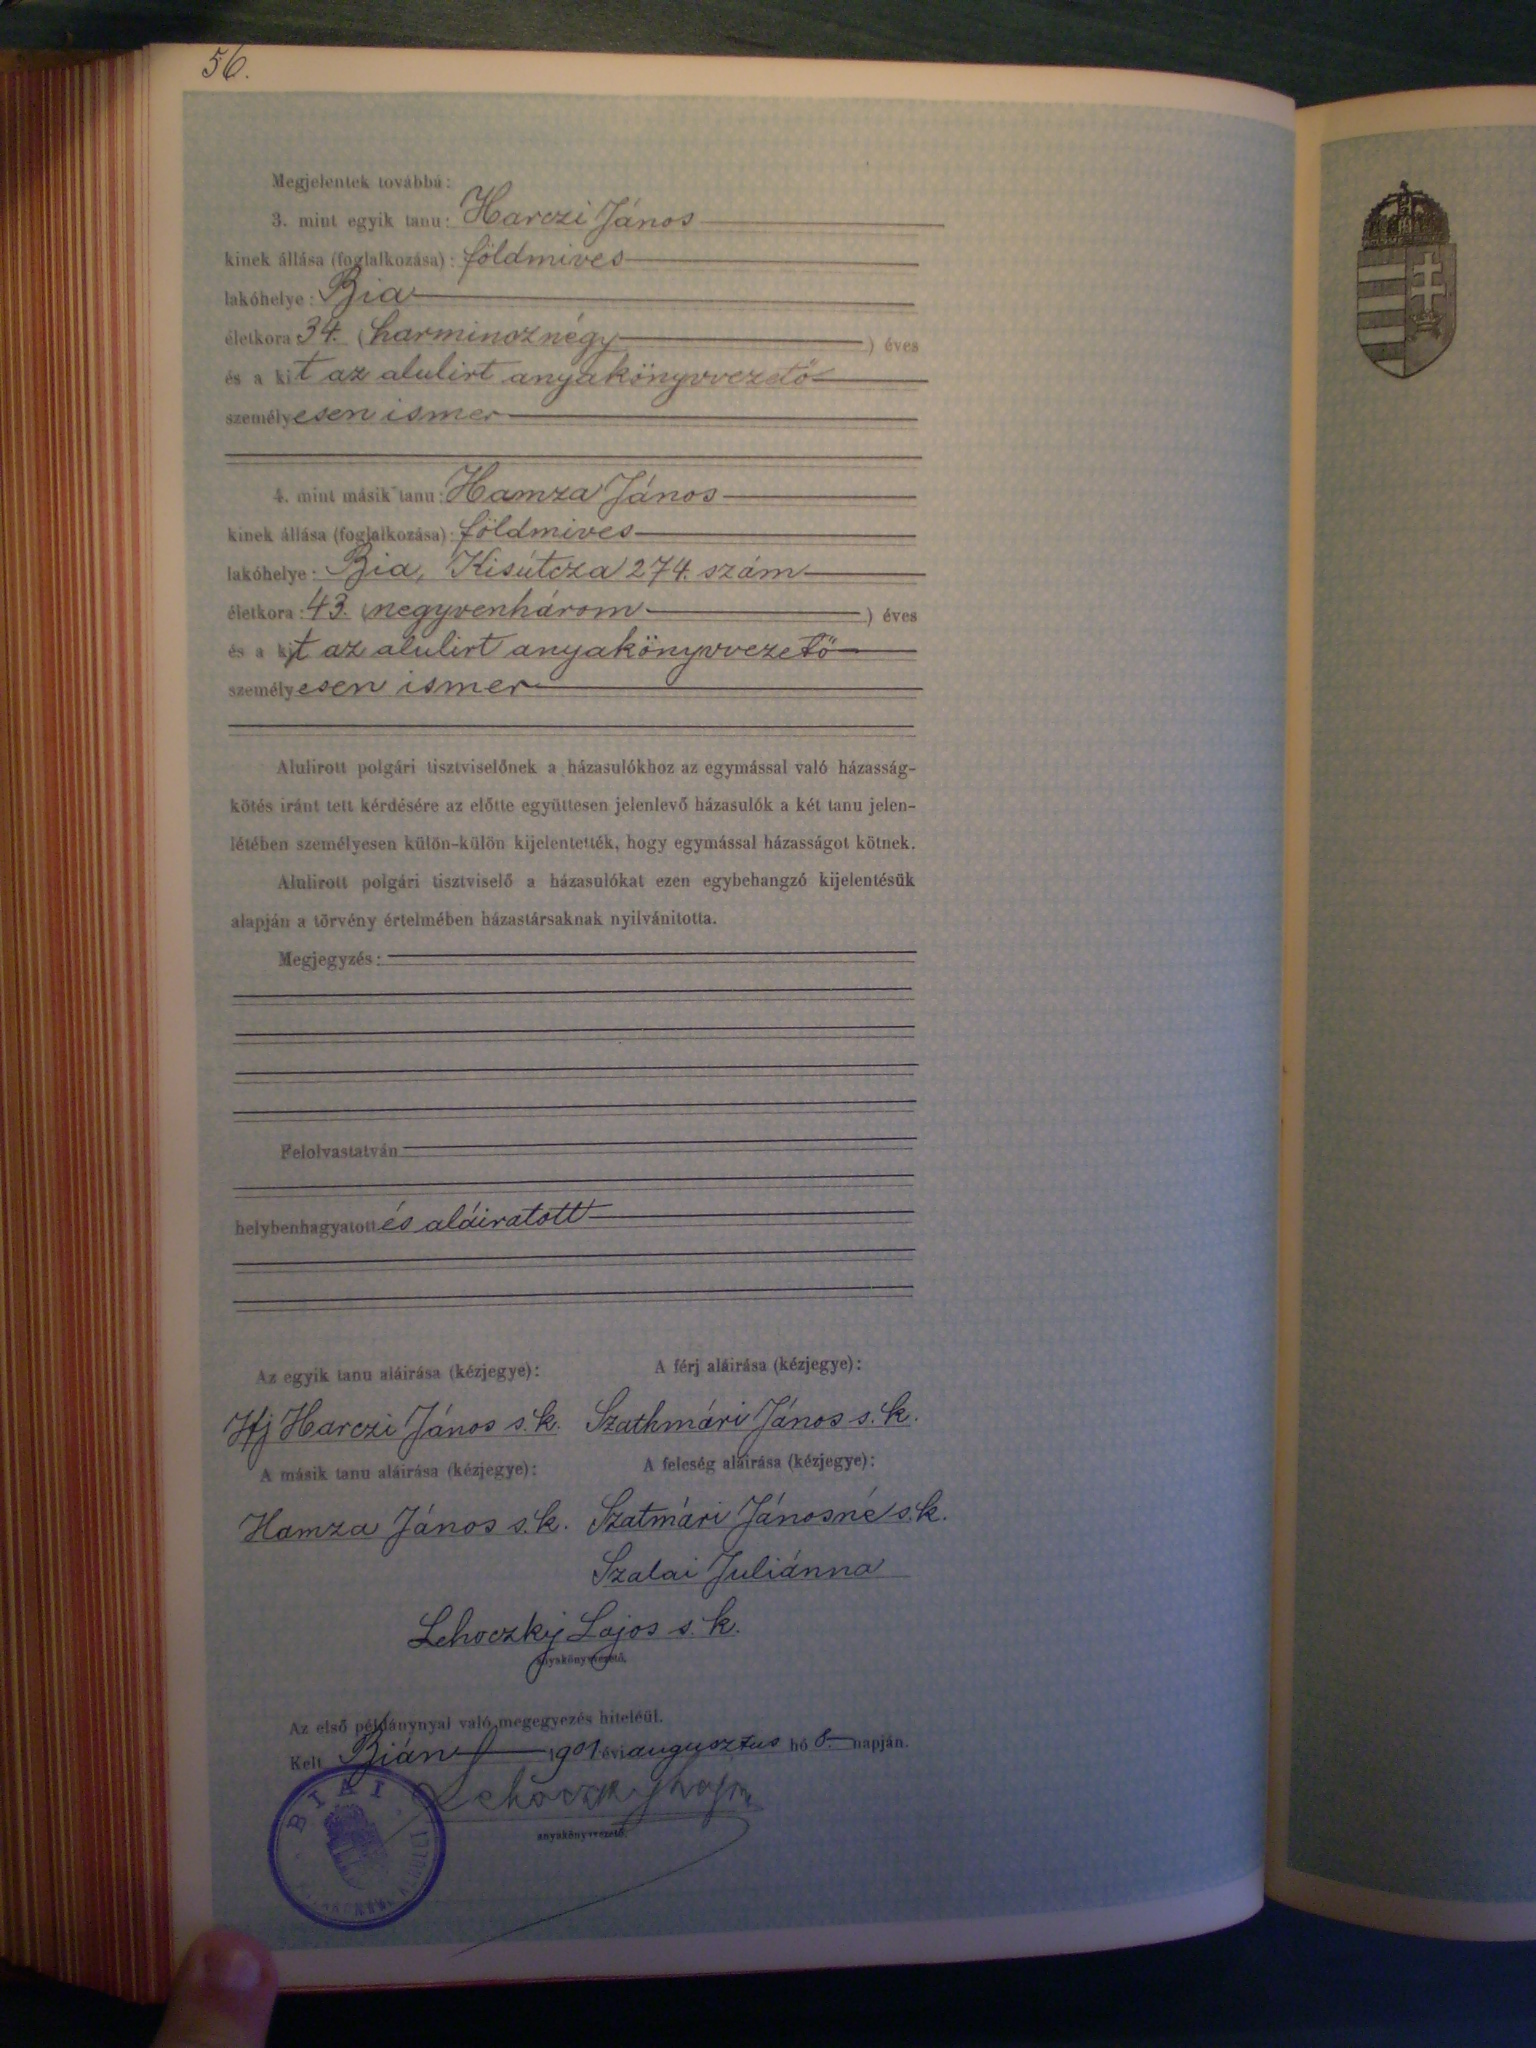 56.
Megjelentek továbbá:
3. mint egyik tanu: Harczi János
kinek állása (foglalkozása): földmives
lakóhelye: Bia
életkora 34. (harmincznégy) éves
és a kit az alulirt anyakönyvvezető
személyesen ismer
4. mint másik tanu: Hamza János
kinek állása (foglalkozása): földmives
lakóhelye: Bia, Kisútcza 274. szám
életkora: 43. (negyvenhárom) éves
és a kit az alulirt anyakönyvvezető
személyesen ismer
Alulirott polgári tisztviselőnek a házasulókhoz az egymással való házasság-
kötés iránt tett kérdésére az előtte együttesen jelenlevő házasulók a két tanu jelen-
létében személyesen külön-külön kijelentették, hogy egymással házasságot kötnek.
Alulirott polgári tisztviselő a házasulókat ezen egybehangzó kijelentésük
alapján a törvény értelmében házastársaknak nyilvánitotta.
Megjegyzés:
Felolvastatván
helybenhagyatott és aláiratott
Az egyik tanu aláirása (kézjegye): A férj aláirása (kézjegye):
Ifj Harczi János s.k. Szathmári János s.k.
A másik tanu aláirása (kézjegye): A feleség aláirása (kézjegye):
Hamza János s.k. Szatmári Jánosné s.k.
Szalai Juliánna
Lehoczky Lajos s.k.
anyakönyvvezető.
Az első példánynyal való megegyezés hiteléül.
Kelt Bián 1901 évi augusztus hó 8. napján.
Lehoczky Lajos
anyakönyvvezető.
BIAI